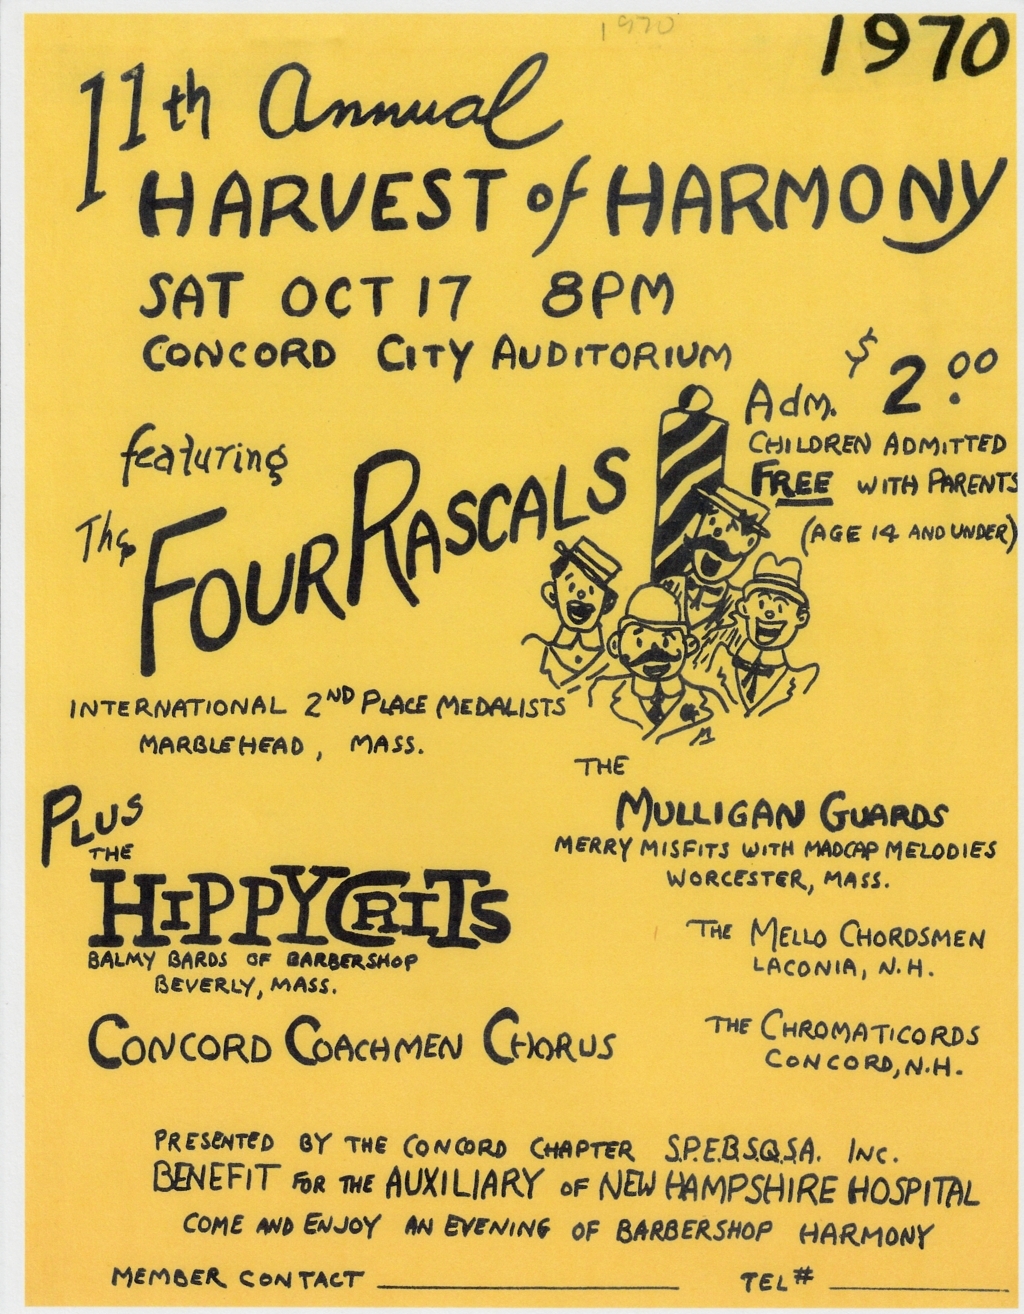 1970
1970
11th Annual
HARVEST of HARMONY
SAT OCT 17 8PM
CONCORD CITY AUDITORIUM
Adm. $2.00
CHILDREN ADMITTED
FREE WITH PARENTS
(AGE 14 AND UNDER)
featuring
The FOUR RASCALS
INTERNATIONAL 2ND PLACE MEDALISTS
MARBLEHEAD, MASS.
PLUS
THE
HIPPYCRITS
BALMY BARDS OF BARBERSHOP
BEVERLY, MASS.
CONCORD COACHMEN CHORUS
THE
MULLIGAN GUARDS
MERRY MISFITS WITH MADCAP MELODIES
WORCESTER, MASS.
THE MELLO CHORDSMEN
LACONIA, N.H.
THE CHROMATICORDS
CONCORD, N.H.
PRESENTED BY THE CONCORD CHAPTER S.P.E.B.S.Q.S.A. INC.
BENEFIT FOR THE AUXILIARY OF NEW HAMPSHIRE HOSPITAL
COME AND ENJOY AN EVENING OF BARBERSHOP HARMONY
MEMBER CONTACT ____________ TEL# ____________